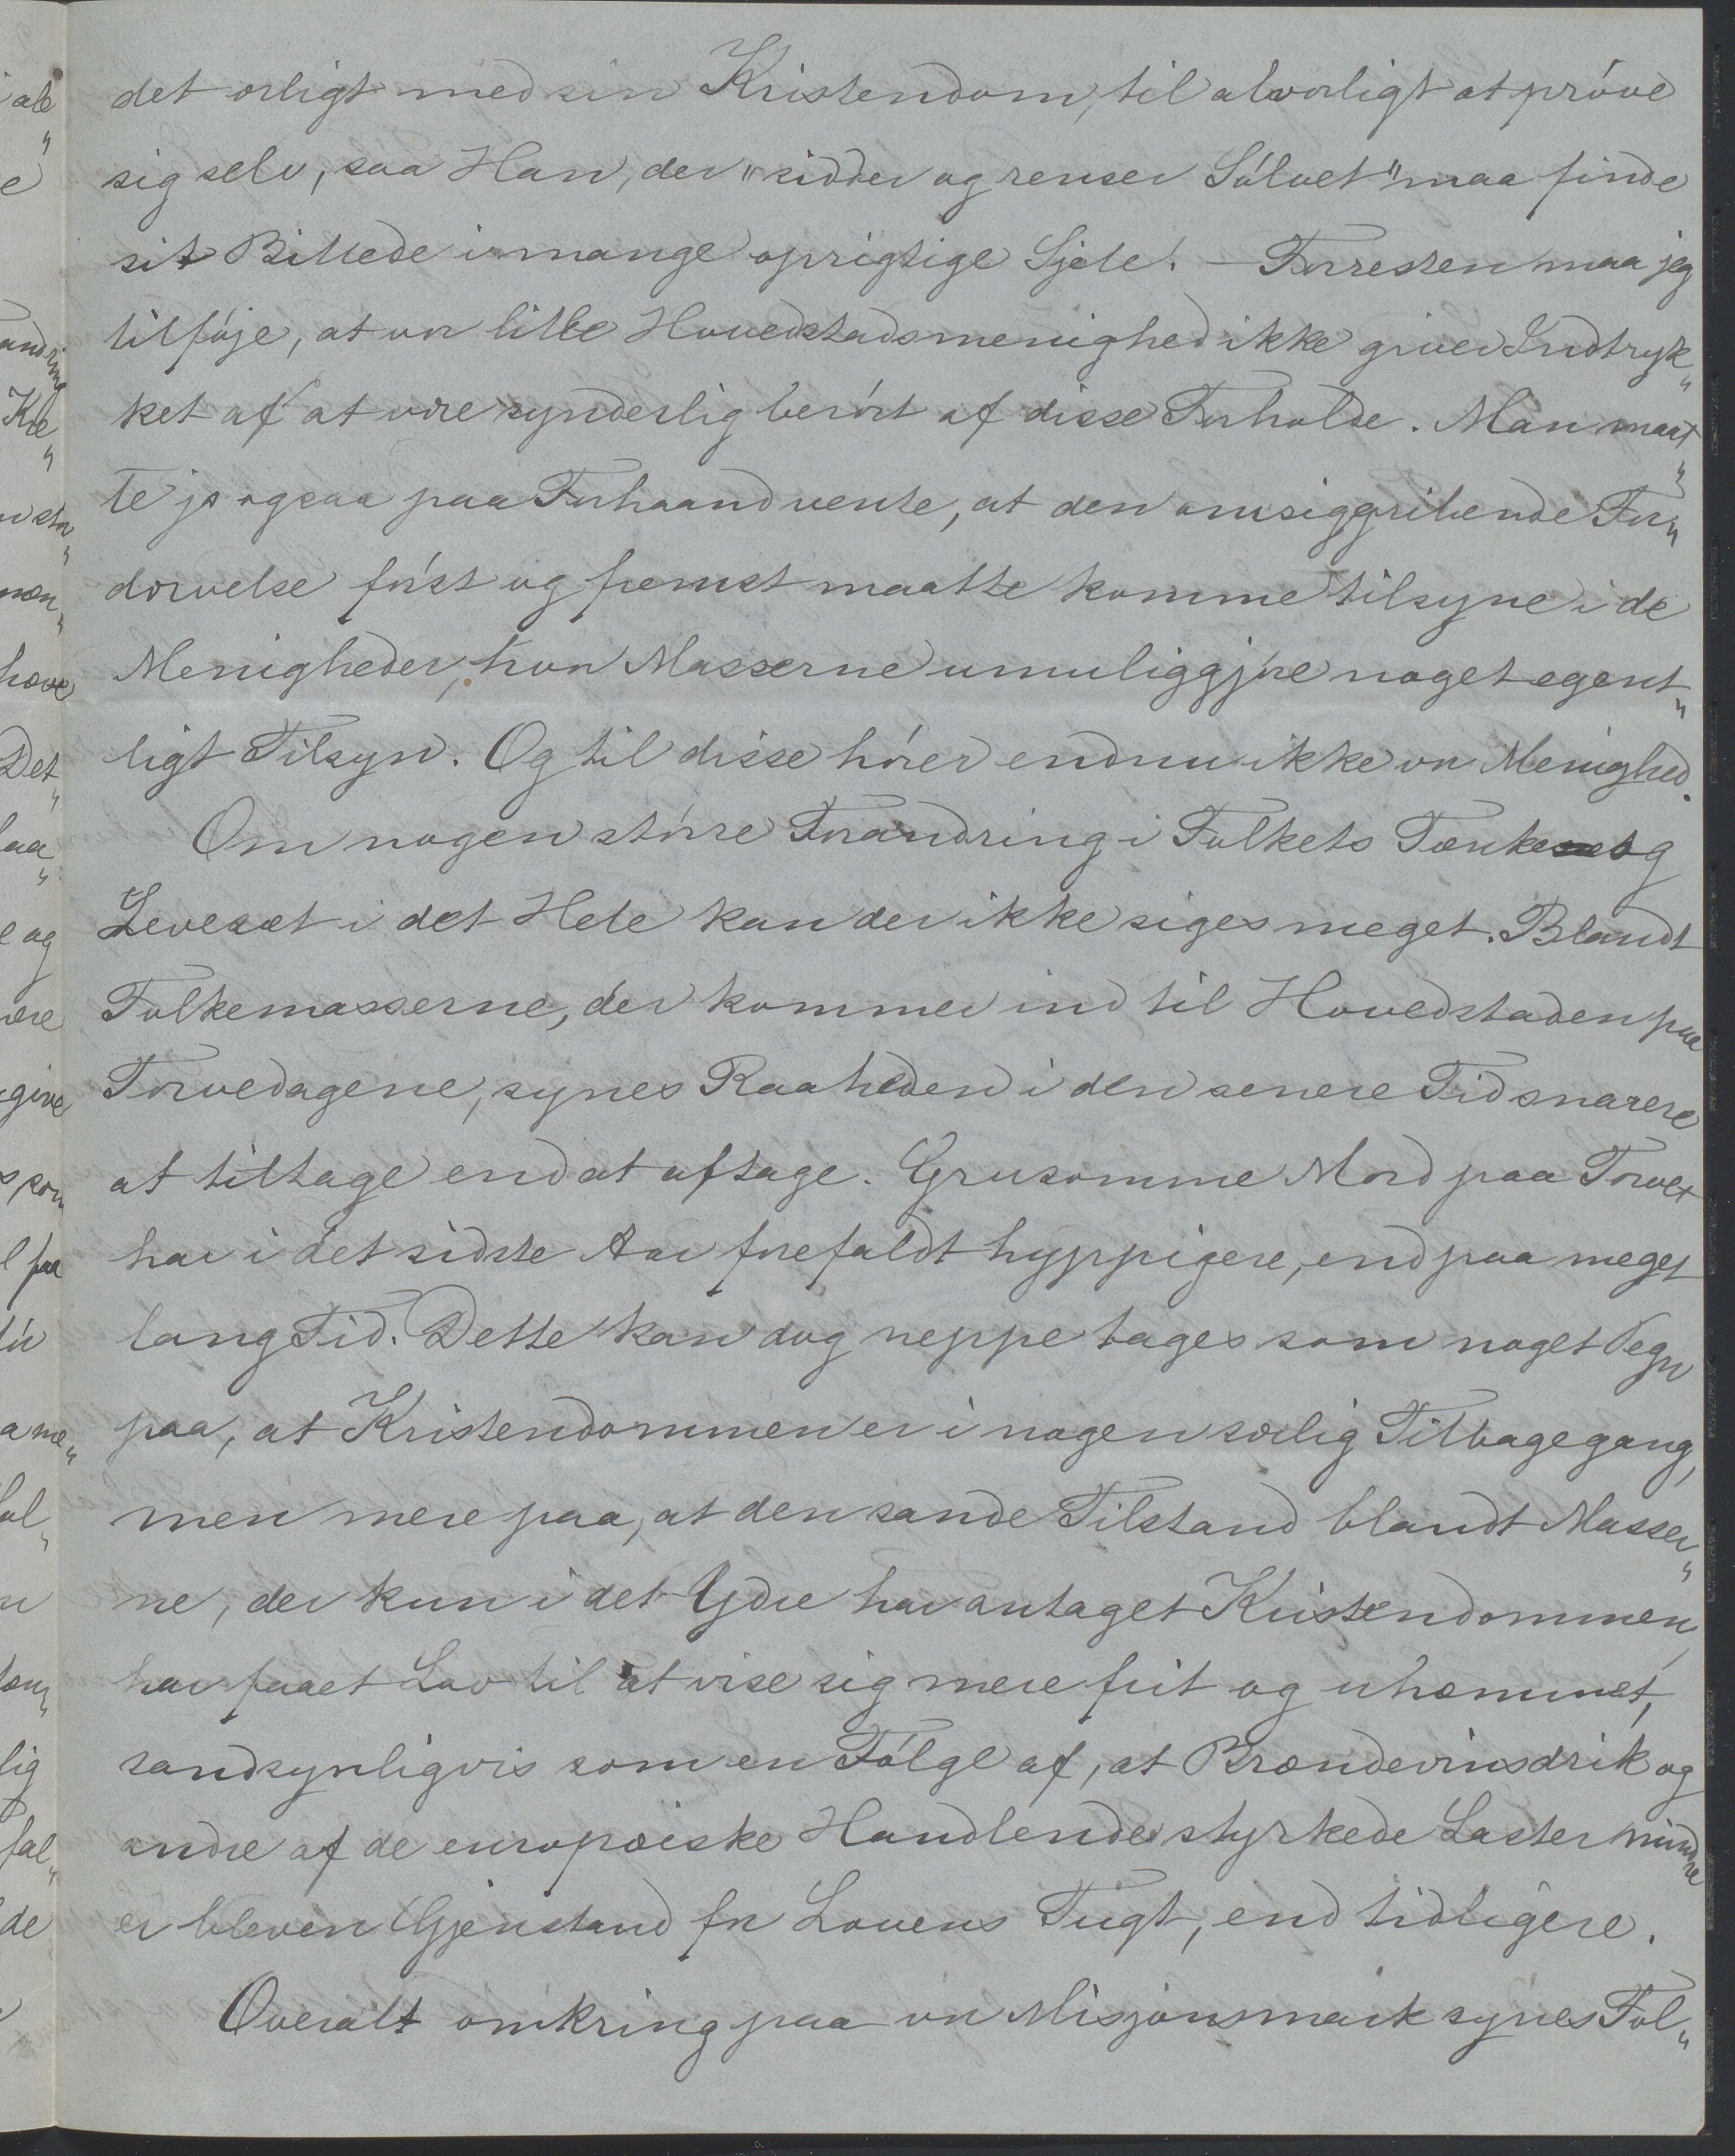 det ærligt med sin Kristendom, til alvorligt at próve
sig selv, saa Han, der "sidder og renser Sólvet" maa finde
sit Billede i mange oprigtige Sjele! — Forresten maa jeg
tilfóje, at vor lille Hovedstadsmenighed ikke giver Indtryk„
ket af at være synderlig berórt af disse Forholde. Man maat„
te jo ogsaa paa Forhaand vente, at den omsiggribende For„
dærvelse fórst og fremst maatte komme tilsyne i de
Menigheder, hvor Masserne umuliggjóre noget egent„
ligt Tilsyn. Og til disse hórer endnu ikke vor Menighed.
Om nogen stórre Forandring i Folkets Tænke og
Levesæt i det Hele kan der ikke siges meget. Blandt
Folkemasserne, der kommer ind til Hovedstaden paa
Torvedagene, synes Raaheden i den senere Tid snarere
at tiltage end at aftage. Grusomme Mord paa Torvet
har i det sidste Aar forefaldt hyppigere, end paa meget
lang Tid. Dette kan dog neppe tages som noget Tegn
paa, at Kristendommen er i nogen særlig Tilbagegang,
men mere paa, at den sande Tilstand blandt Masser„
ne, der kun i det Ydre har antaget Kristendommen,
har faaet Lov til at vise sig mere frit og uhæmmet,
sandsynligvis som en Fólge af, at Brændevinsdrik og
andre af de europæiske Handlende styrkede Laster mindre
er bleven Gjenstand for Lovens Tugt, end tidligere.
Overalt omkring paa vor Misjonsmark synes Fol„